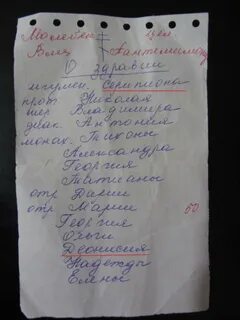 Молебен цел.
Влмц Пантелеимону
О здравии
митроп. Серапиона
прот Николая
иер Владимира
диак. Антония
монах. Тихоны
Александра
Георгия
Татианы
отр Дарии
отр. Марии
Георгия 50
Ольги
Дионисия
Надежды
Елены